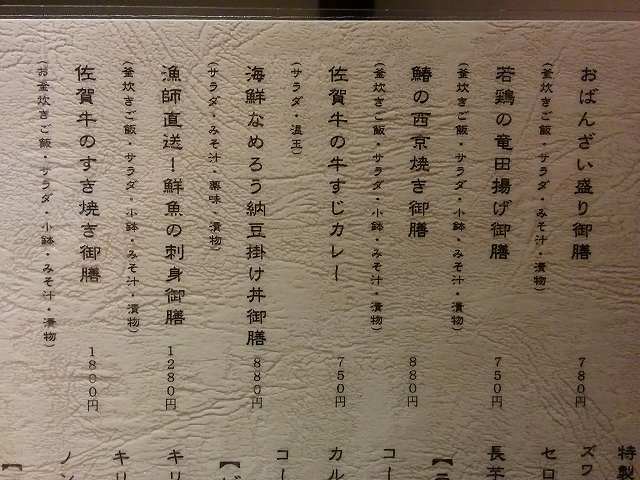 おばんざい盛り御膳 780円
(釜炊きご飯・サラダ・みそ汁・漬物)
若鶏の竜田揚げ御膳 750円
(釜炊きご飯・サラダ・小鉢・みそ汁・漬物)
鰆の西京焼き御膳 880円
(釜炊きご飯・サラダ・小鉢・みそ汁・漬物)
佐賀牛の牛すじカレー 750円
(サラダ・温玉)
海鮮なめろう納豆掛け丼御膳 880円
(サラダ・みそ汁・薬味・漬物)
漁師直送!鮮魚の刺身御膳 1280円
(釜炊きご飯・サラダ・小鉢・みそ汁・漬物)
佐賀牛のすき焼き御膳 1800円
(お釜炊きご飯・サラダ・小鉢・みそ汁・漬物)
特製
ズワ
セロ
長芋
コー
カル
コー
キリ
キリ
ノン